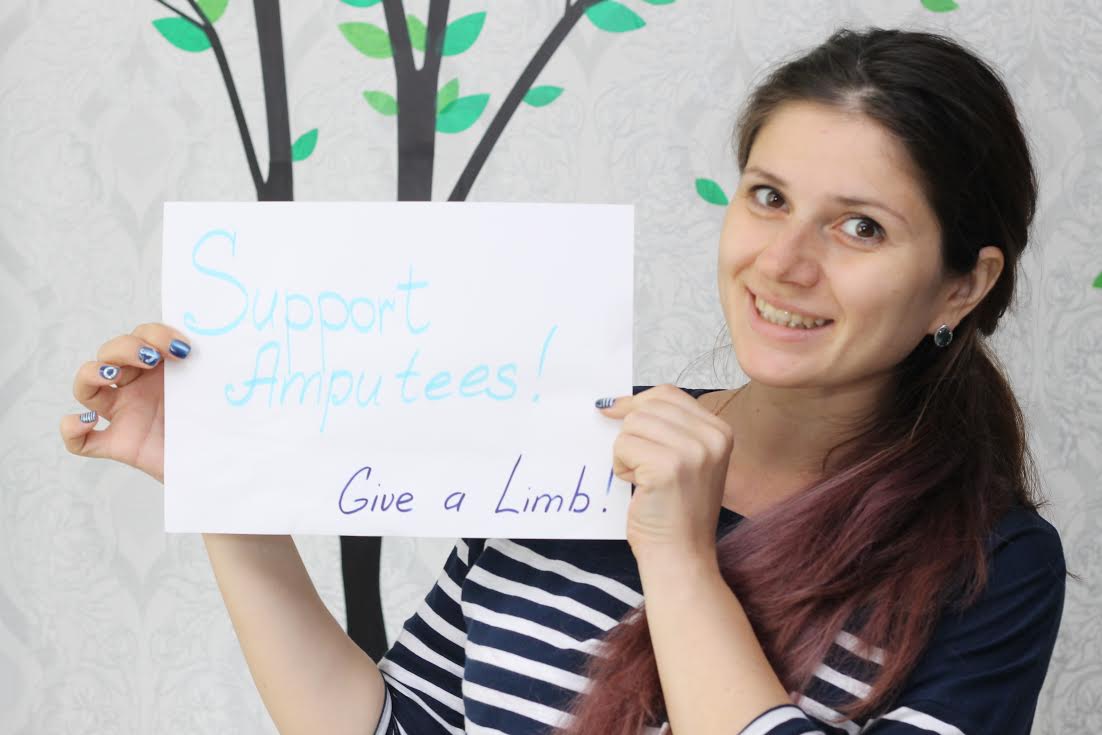 Support
Amputees!
Give a Limb!